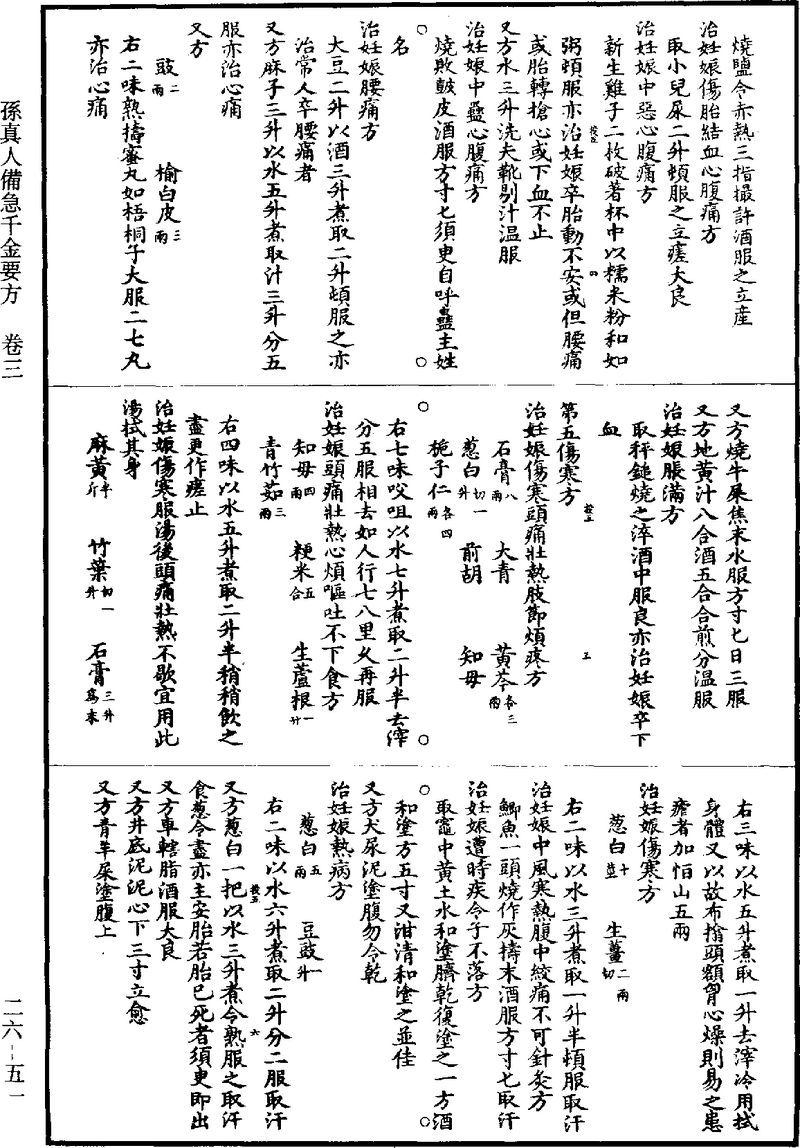 孫真人備急千金要方　卷三
燒鹽令赤熱三指撮許酒服之立産
治妊娠傷胎結血心腹痛方
取小兒尿二升頓服之立瘥大良
治妊娠中惡心腹痛方
新生雞子二枚破著杯中以糯米粉和如
粥頓服亦治妊娠卒胎動不安或但腰痛
或胎轉搶心或下血不止
又方水三升洗夫靴剔汁温服
治妊娠中蠱心腹痛方
燒敗鼓皮酒服方寸七須臾自呼蠱主姓
名
治妊娠腰痛方
大豆二升以酒三升煮取二升頓服之亦
治常人卒腰痛者
又方麻子三升以水五升煮取汁三升分五
服亦治心痛
又方
豉二兩　榆白皮三兩
右二味熟擣蜜丸如梧桐子大服二七丸
亦治心痛
又方燒牛屎焦末水服方寸匕日三服
又方地黃汁八合酒五合合煎分温服
治妊娠脹滿方
取秤鎚燒之淬酒中服良亦治妊娠卒下
血
第五傷寒方
治妊娠傷寒頭痛壯熱肢節煩疼方
石膏八兩　大青　黃芩各三兩
葱白切一升　前胡　知母
梔子仁各四兩
右七味㕮咀以水七升煮取二升半去滓
分五服相去如人行七八里久再服
治妊娠頭痛壯熱心煩嘔吐不下食方
知母四兩　粳米五合　生蘆根一升
青竹茹三兩
右四味以水五升煮取二升半稍稍飲之
盡更作瘥止
治妊娠傷寒服湯後頭痛壯熱不歇宜用此
湯拭其身
麻黃半斤　竹葉切一升　石膏三升爲末
右三味以水五升煮取一升去滓冷用拭
身體又以故布搨頭額胷心燥則易之患
瘧者加恒山五兩
治妊娠傷寒方
葱白十莖　生薑二兩切
右二味以水三升煮取一升半頓服取汗
治妊娠中風寒熱腹中絞痛不可針灸方
鯽魚一頭燒作灰擣末酒服方寸七取汗
治妊娠遭時疾令子不落方
取竈中黃土水和塗臍乾復塗之一方酒
和塗方五寸又泔清和塗之並佳
又方犬尿泥塗腹勿令乾
治妊娠熱病方
葱白五兩　豆豉一升
右二味以水六升煮取二升分二服取汗
又方葱白一把以水三升煮令熟服之取汗
食葱令盡亦主安胎若胎已死者須臾即出
又方車轄脂酒服大良
又方井底泥泥心下三寸立愈
又方青羊屎塗腹上
二六-五一